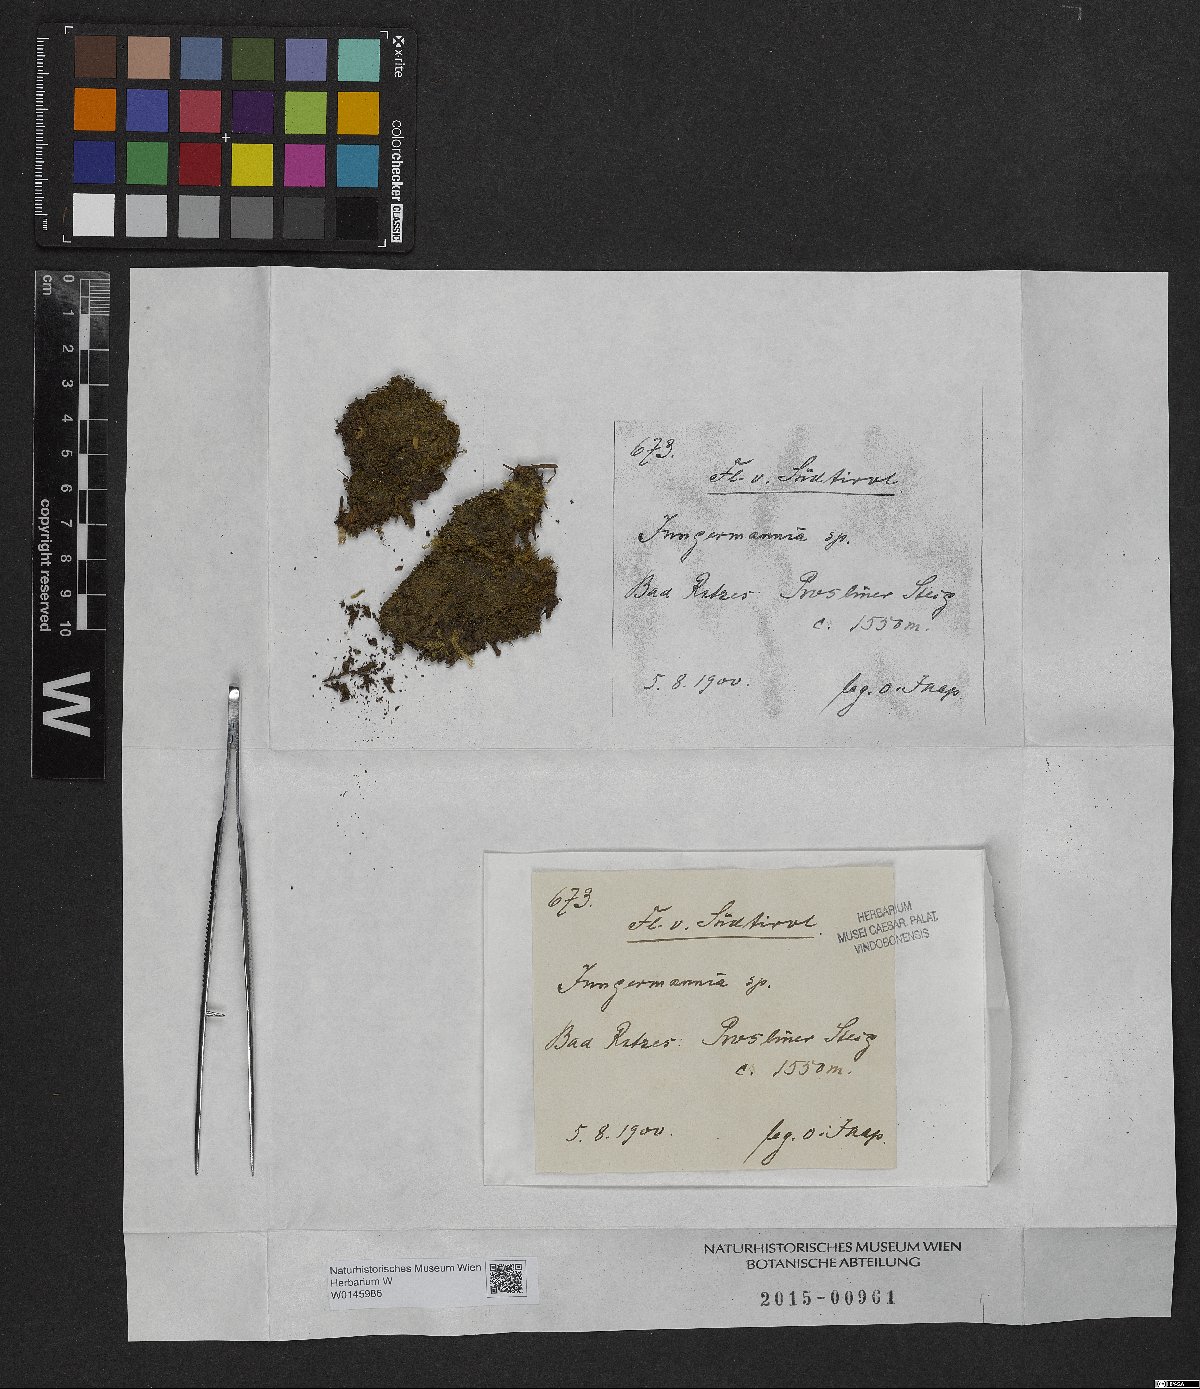 x-rite
colorchecker CLASSIC
mm
cm
0 1 2 3 4 5 6 7 8 9 10
copyright reserved
W
673.
Fl. v. Südtirol.
Jungermannia sp.
Bad Ratzes: Prosliner Steig
c. 1550 m.
5. 8. 1900.
leg. O. Jaap.
673.
Fl. v. Südtirol.
Jungermannia sp.
Bad Ratzes: Prosliner Steig
c. 1550 m.
5. 8. 1900.
leg. O. Jaap.
HERBARIUM
MUSEI CAESAR. PALAT.
VINDOBONENSIS
NATURHISTORISCHES MUSEUM WIEN
BOTANISCHE ABTEILUNG
2015-00961
Naturhistorisches Museum Wien
Herbarium W
W0145986